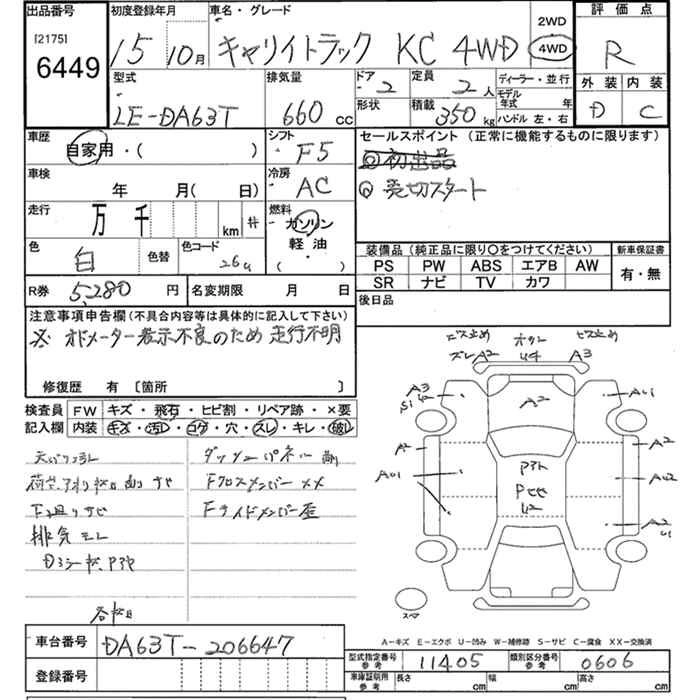 出品番号 初度登録年月 車名・グレード 2WD 評価点
[2175]
6449 15 10月 キャリイトラック KC 4WD 4WD R
型式 排気量 ドア 定員 ディーラー・並行 外装 内装
LE-DA63T 660 cc 2 2人 モデル年式 年 D C
形状 積載 350 kg ハンドル 左・右
車歴 シフト セールスポイント (正常に機能するものに限ります)
自家用・( ) F5 ◎初出品
車検 冷房 ◎売切スタート
年 月( 日) AC
走行 燃料
万 千 km # ガソリン
色 色替 色コード 軽油 装備品 (純正品に限り○をつけてください) 新車保証書
白 26U ( ・ ) PS PW ABS エアB AW 有・無
SR ナビ TV カワ
R券 5,280 円 名変期限 月 日 後日品
注意事項申告欄(不具合内容等は具体的に記入して下さい)
※ オドメーター表示不良のため 走行不明
修復歴 有 [箇所 ]
検査員 FW キズ・飛石・ヒビ割・リペア跡・×要
記入欄 内装 キズ・汚レ・コゲ・穴・スレ・キレ・破レ
ダッシュパネル
Fクロスメンバー XX
下廻りサビ Fサイドメンバー歪
排気モレ
A2 U4 A3
A3 A2
A2 A2
スペア
A-キズ E-エクボ U-凹み W-補修跡 S-サビ C-腐食 XX-交換済
車台番号 DA63T-206647 型式指定番号 参考 11405 類別区分番号 参考 0606
登録番号 車庫証明用 参考 長さ cm 幅 cm 高さ cm